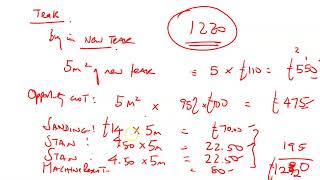 TEAK.
Buy in NEW TEAK
1220
5m² of new teak = 5 × £110 = £550
Opportunity cost: 5m² × 95% × £100 = £475
SANDING: £14 × 5m = £70.00
STAIN: 4.50 × 5m = 22.50
STAIN 4.50 × 5m = 22.50
MACHINE RENT. = 80
195
£1220